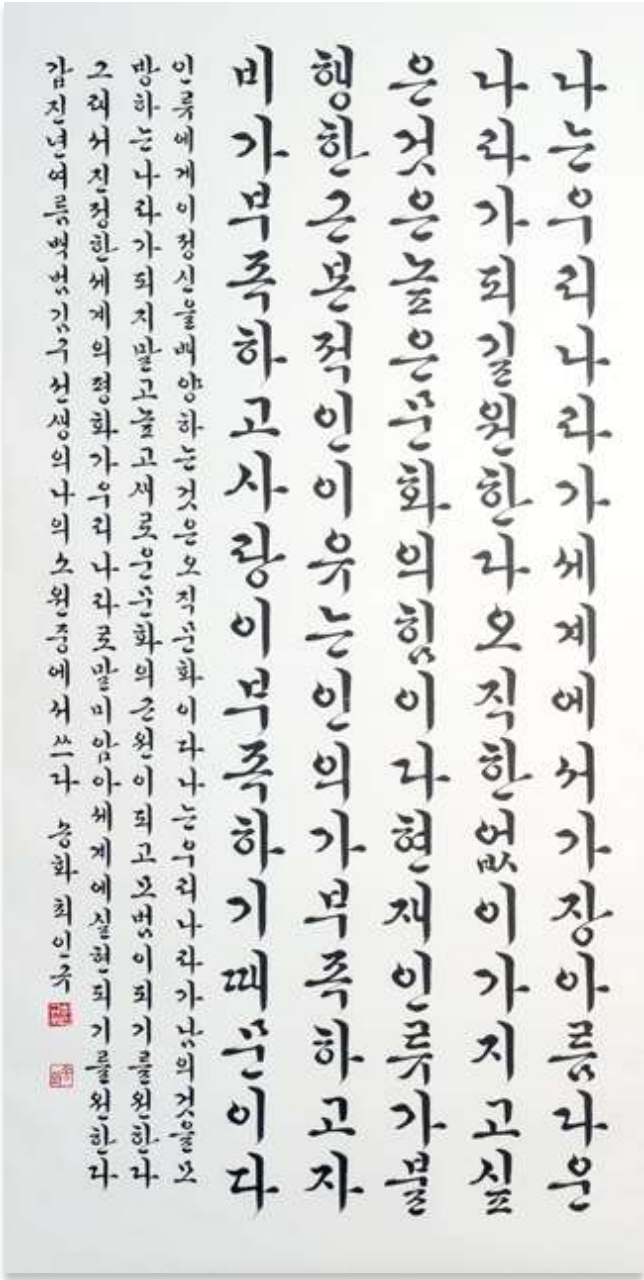 나는우리나라가세계에서가장아름다운
나라가되길원한다오직한없이가지고싶
은것은높은문화의힘이다현재인류가불
행한근본적인이유는인의가부족하고자
비가부족하고사랑이부족하기때문이다
인류에게이정신을배양하는것은오직문화이다나는우리나라가남의것을모
방하는나라가되지말고높고새로운문화의근원이되고모범이되기를원한다
그래서진정한세계의평화가우리나라로말미암아세계에실현되기를원한다
갑진년여름백범김구선생의나의소원중에서쓰다 송화최인국